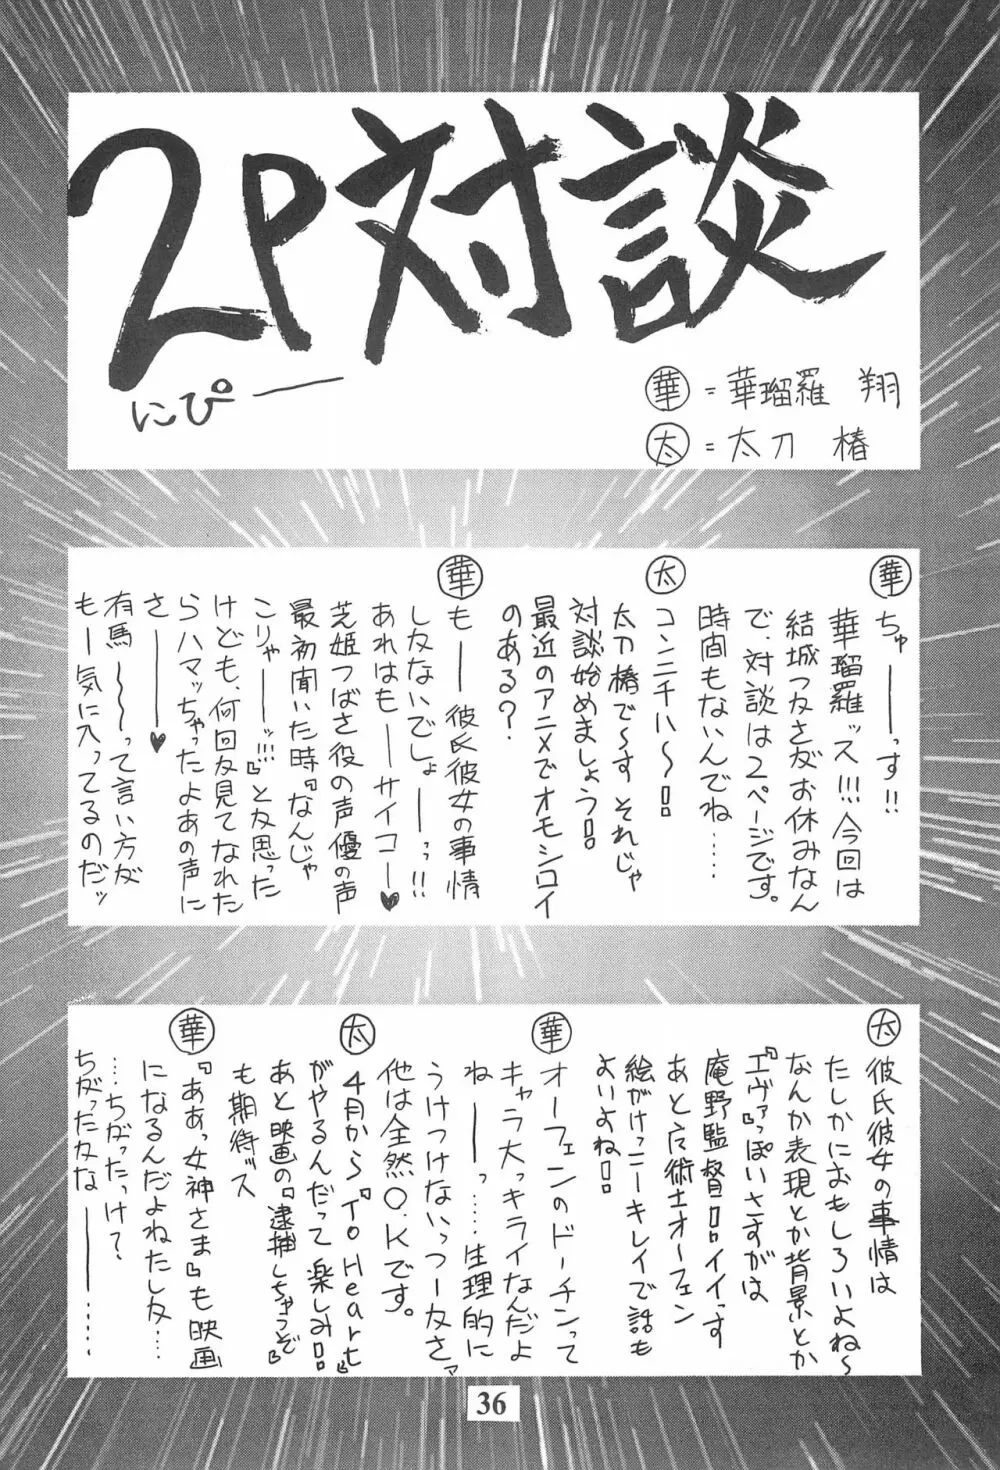 2P対談
にぴー
華 = 華瑠羅 翔
太 = 太刀 椿
華 ちゅーーっす!!
華瑠羅ッス!!!今回は
結城つかさがお休みなん
で、対談は2ページです。
時間もないんでね……
太 コンニチハ〜!
太刀椿で〜す それじゃ
対談始めましょう!
最近のアニメでオモシロイ
のある?
華 もーー彼氏彼女の事情
しかないでしょーーっ!!
あれはもーーサイコー♥
芝姫つばさ役の声優の声
最初聞いた時『なんじゃ
こりゃーーッ!!!』とか思った
けども、何回か見てなれた
らハマッちゃったよあの声に
さーーー♥
有馬〜〜って言い方が
もー気に入ってるのだッ
太 彼氏彼女の事情は
たしかにおもしろいよね〜
なんか表現とか背景とか
『エヴァ』っぽいさすがは
庵野監督!!イイっす
あと魔術士オーフェン
絵がけっこーキレイで話も
よいよね!
華 オーフェンのドーチンって
キャラ大っキライなんだよ
ねーーっ……生理的に
うけつけないっつーかさァ
他は全然O.Kです。
太 4月から『To Heart』
がやるんだって楽しみ!!
あと映画の『逮捕しちゃうぞ』
も期待ズス
華 『ああっ女神さま』も映画
になるんだよねたしか……
……ちがったっけ?
ちがったかなーーー……
36